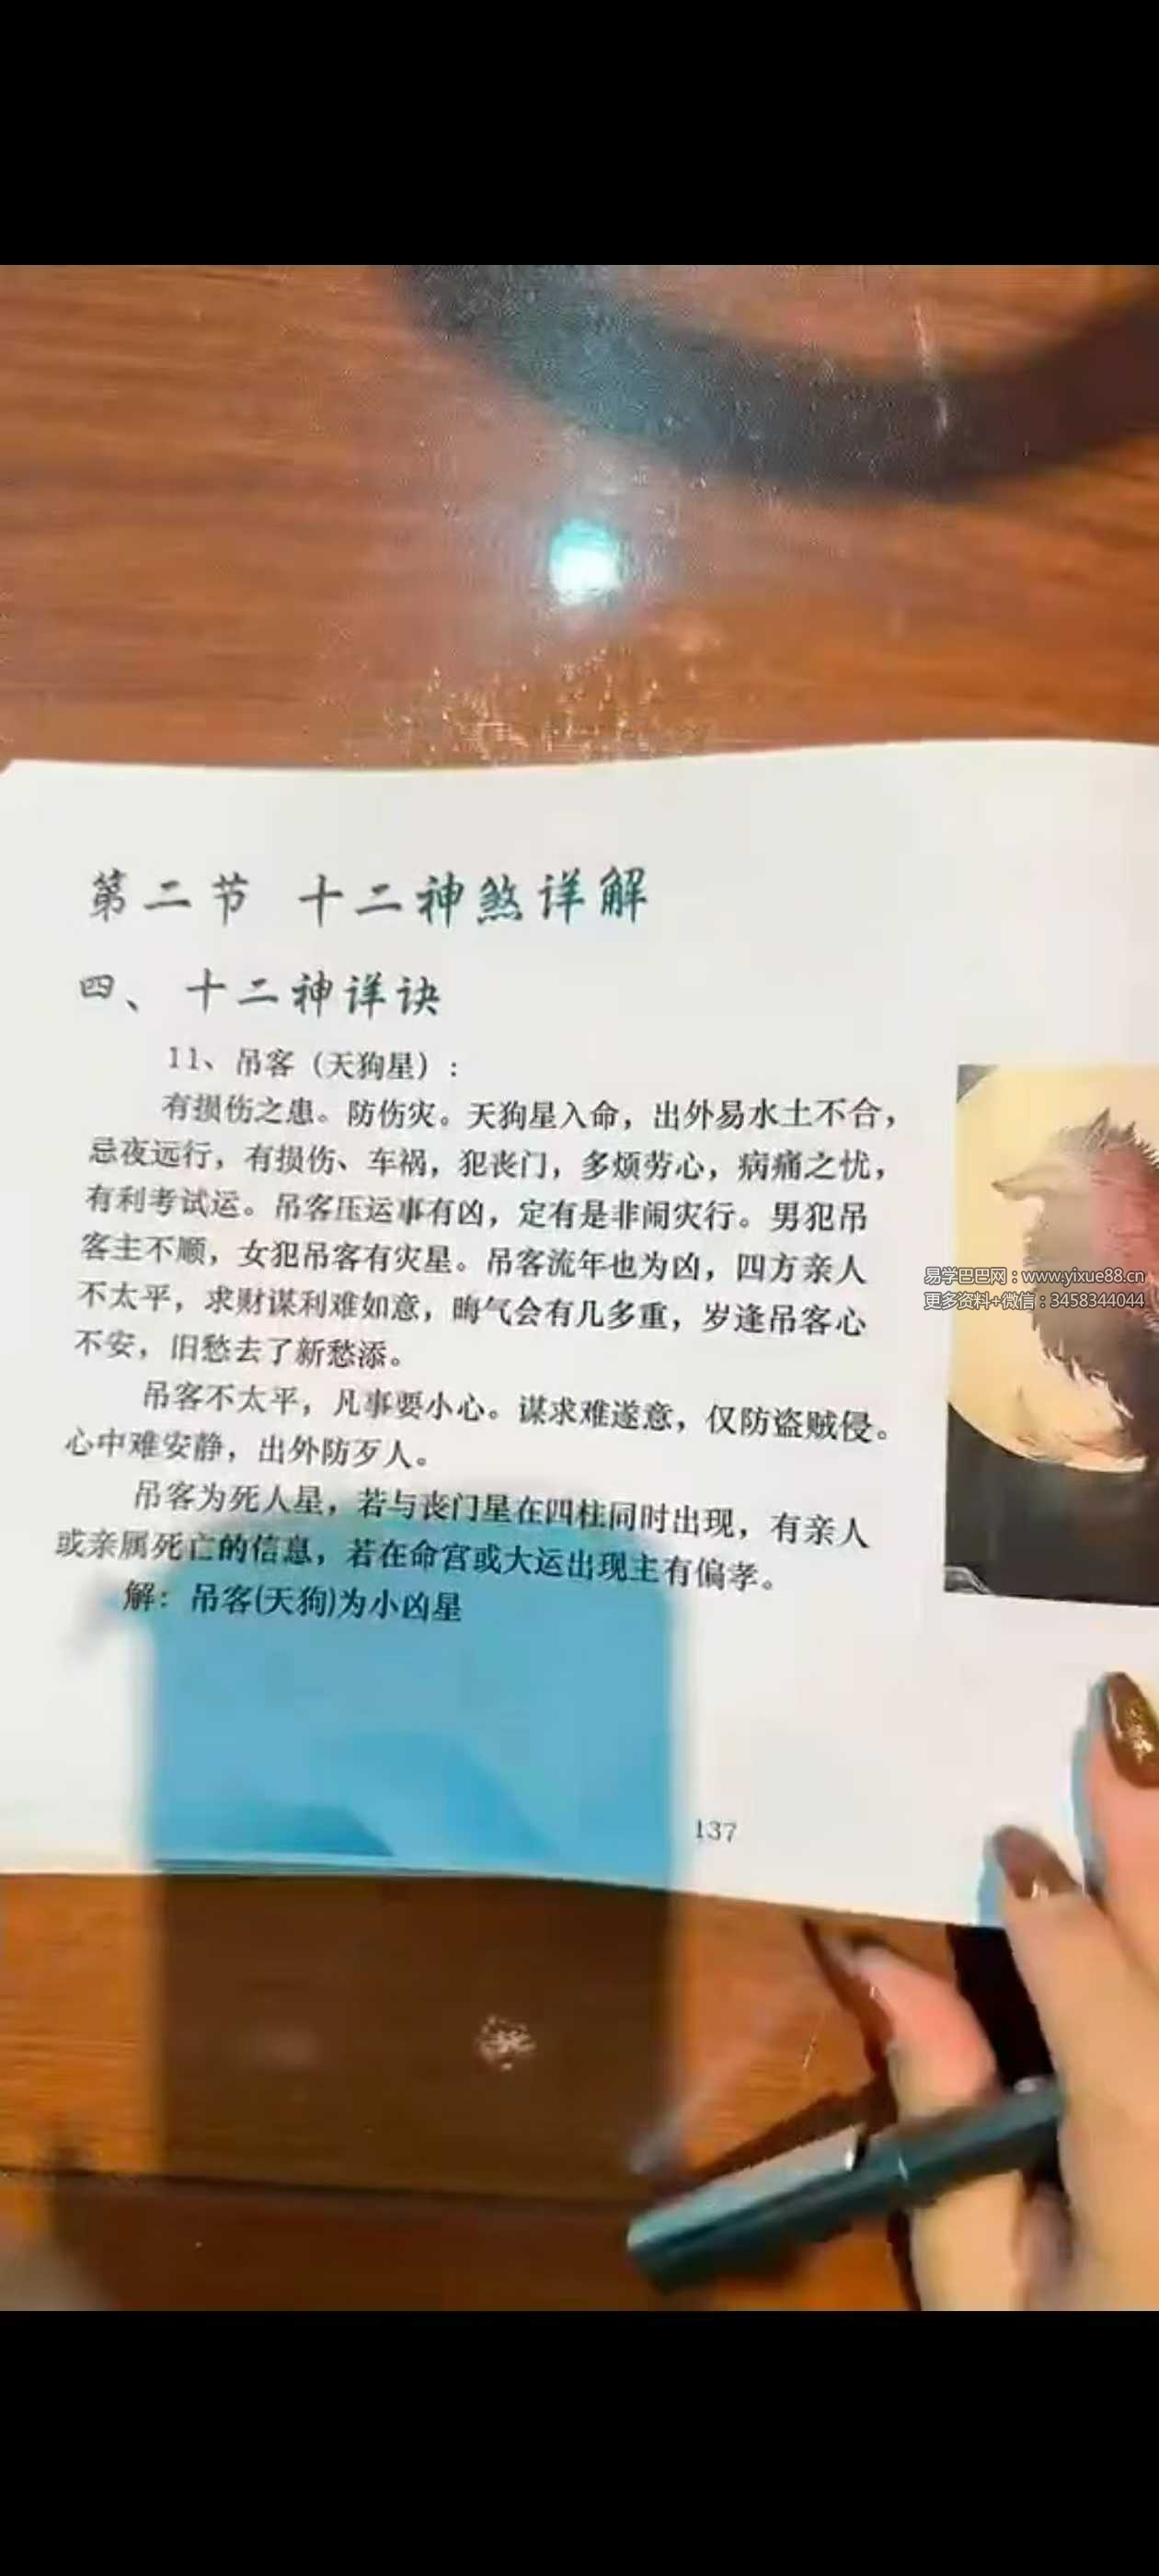 第二节 十二神煞详解
四、十二神详诀
11、吊客（天狗星）：
有损伤之患。防伤灾。天狗星入命，出外易水土不合，
忌夜远行，有损伤、车祸，犯丧门，多烦劳心，病痛之忧，
有利考试运。吊客压运事有凶，定有是非闹灾行。男犯吊
客主不顺，女犯吊客有灾星。吊客流年也为凶，四方亲人
不太平，求财谋利难如意，晦气会有几多重，岁逢吊客心
不安，旧愁去了新愁添。
吊客不太平，凡事要小心。谋求难遂意，仅防盗贼侵。
心中难安静，出外防歹人。
吊客为死人星，若与丧门星在四柱同时出现，有亲人
或亲属死亡的信息，若在命宫或大运出现主有偏孝。
解：吊客(天狗)为小凶星
易学巴巴网：www.yixue88.cn
更多资料+微信：3458344044
137